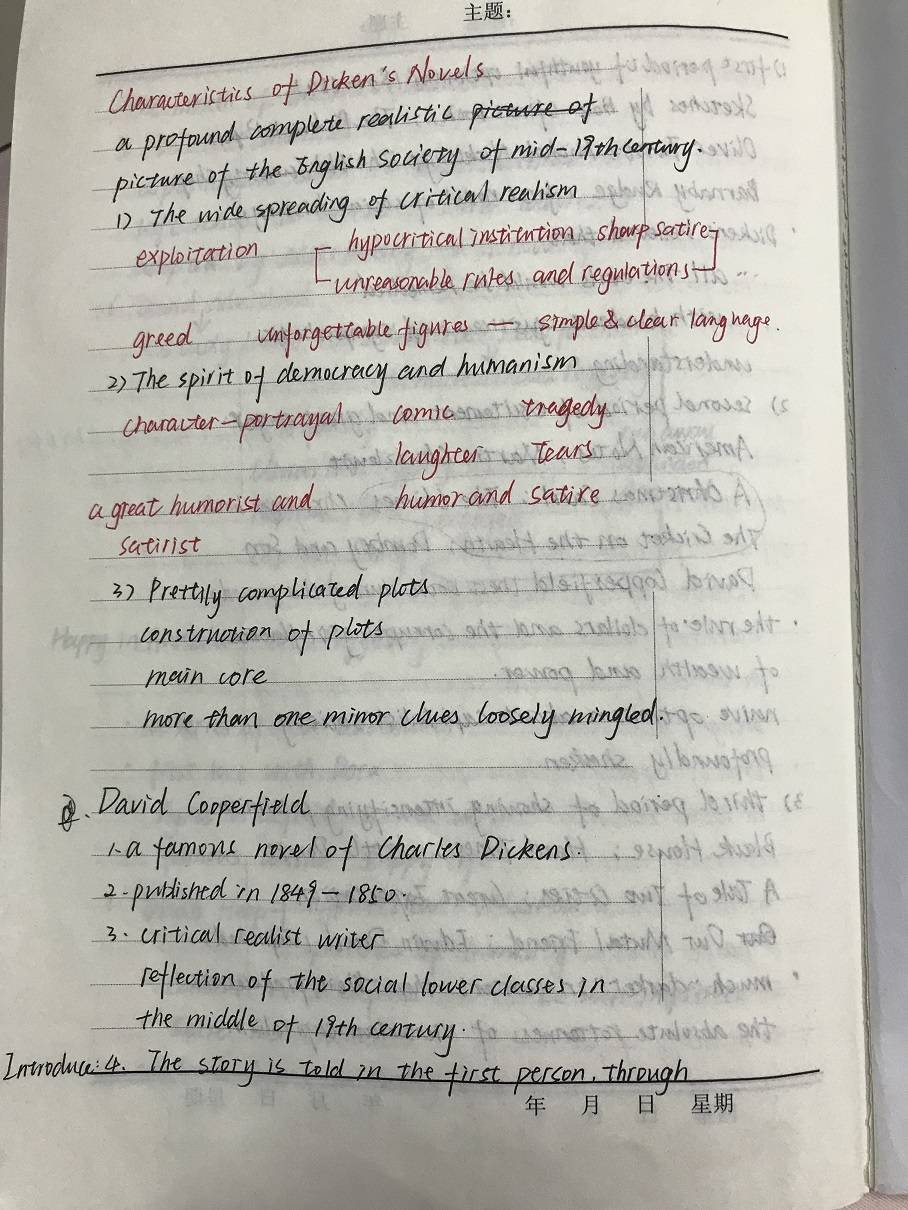 主题:
Characteristics of Dicken's Novels
a profound complete realistic picture of
picture of the English Society of mid-19th century.
1) The wide spreading of critical realism
exploitation hypocritical institution sharp satire
unreasonable rules and regulations
greed unforgettable figures — simple & clear language.
2) The spirit of democracy and humanism
character-portrayal comic tragedy
laughter tears
a great humorist and humor and satire
satirist
3) Prettily complicated plots
construction of plots
main core
more than one minor clues loosely mingled.
David Cooperfield
1. a famous novel of Charles Dickens.
2. published in 1849—1850.
3. critical realist writer
reflection of the social lower classes in
the middle of 19th century.
Introduce: 4. The story is told in the first person, through
年 月 日 星期